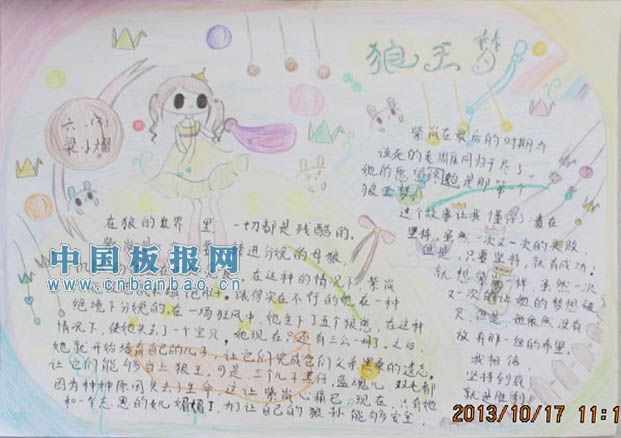 狼王梦
六(1)
梁小熠
在狼的世界里一切都是残酷的。
紫岚是
进分娩的母狼
在这种的情况下紫岚
饿得实在不行的她在一种
绝境下分娩的.在一场狂风中她生下了五个狼崽.在这种
情况下,使她失去了一个宝贝,她现在只还有三公一母了.之后,
她就开始培育自己的儿子让它们完成它们父亲黑桑的遗志.
让它们能够当上狼王.可是,三个儿子黑仔,蓝魂儿 双毛都
因为种种原因失去了生命.这让紫岚心痛已 现在只有她
和一个忘恩的女儿媚媚了.为了让自己的狼孙能够安全.
紫岚在最后的时期与
该死的老雕同归于尽了.
她的愿望
狼王梦.
这个故事让我懂得了:贵在
坚持,虽然一次又一次的失败,
但是 ,只要坚持,就有成功.
就想紫岚一样,虽然一次
又一次的让她的梦想破
灭.但是,她依然没有
放弃那一丝的希望.
我相信
坚持到底
就是胜利
中国板报网
www.cnbanbao.cn
2013/10/17 11:1